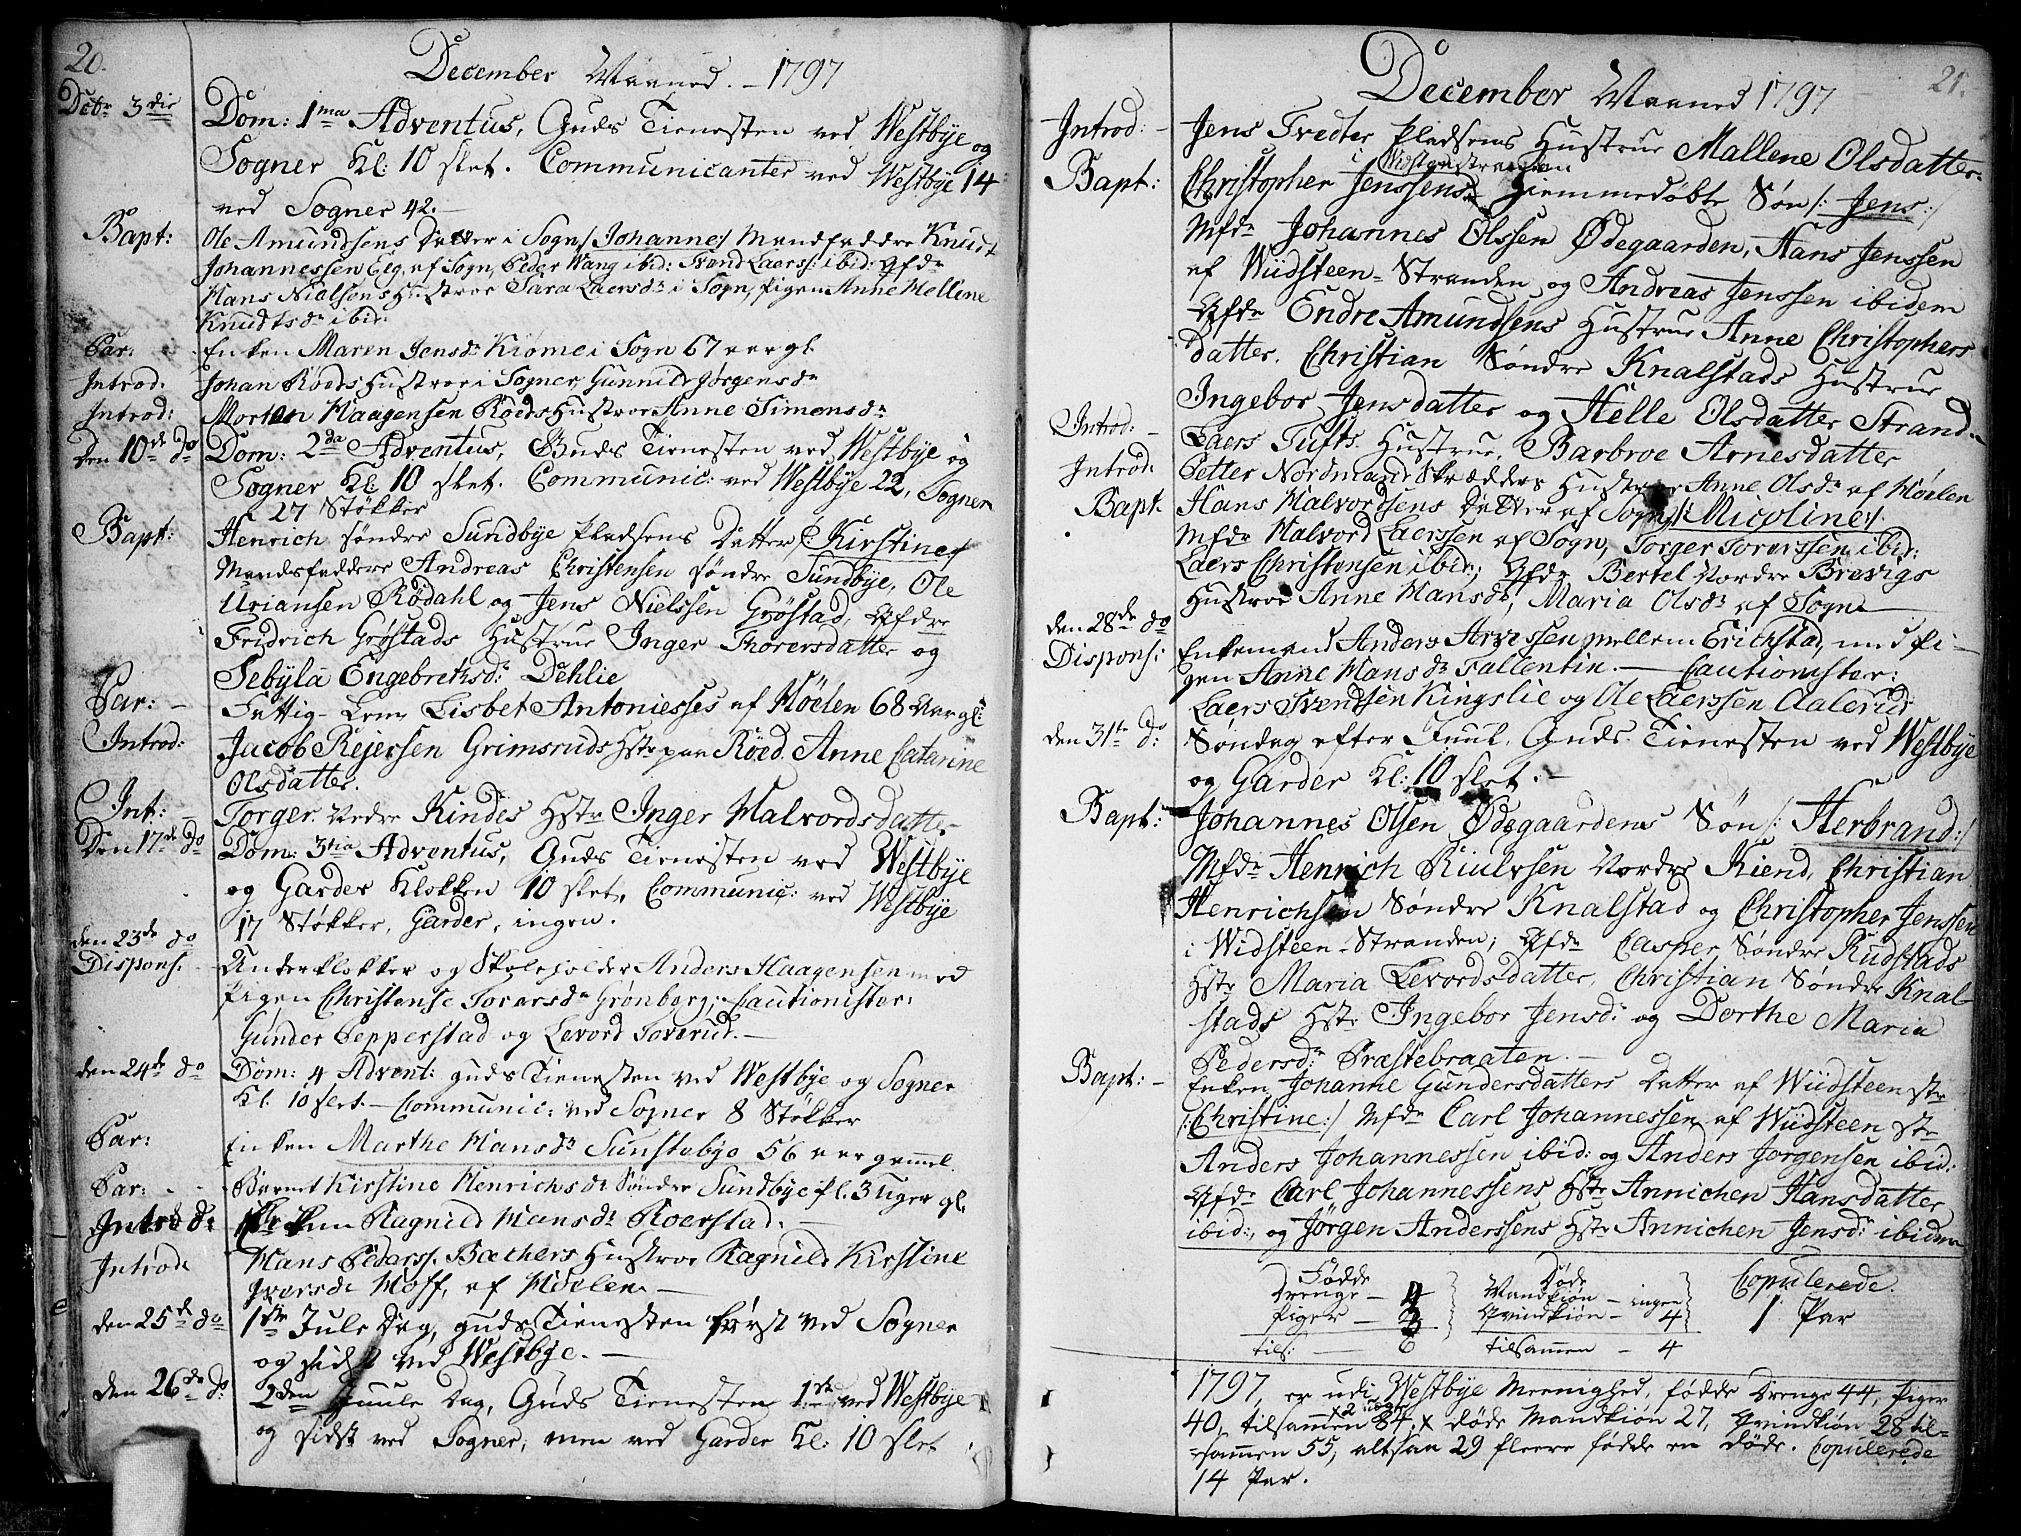 20.
December Maaned. - 1797
Dcbr 3die Dom: 1ma Adventus, Guds Tienesten ved Westbye og
Sogner Kl: 10 slet. Communicanter ved Westbye 14
ved Sogner 42.
Bapt: Ole Amundsens Datter i Sogn /:Johanne:/ Mandfaddre Knudt
Johannessen Eeg, af Sogn, Peder Wang ibid: Svend Laers: ibid: Qfdr
Hans Nielsens Hustroe Sara Laersdr i Sogn, pigen Anne Helline
Knudtsdr ibid:
Par: Enken Maren Jensdr Kiome i Sogn 67 aar gl.
Introd: Johan Röeds Hustroe i Sogner, Gunnild Jörgensdr
Introd: Morten Haagensen Röeds Hustroe Anne Simonsdr
Den 10de do Dom: 2da Adventus, Guds Tienesten ved Westbye og
Sogner Kl: 10 slet. Communic: ved Westbye 22, Sogner
27 Støkker
Bapt: Henrich söndre Sundbye Pladsens Datter /:Kirstine:/
Mandsfaddere Andreas Christensen söndre Sundbye, Ole
Uriansen Rödahl og Jens Nielssen Gröstad, Qfdre
Fridrich Gröstads Hustrue Inger Thorersdatter og
Sebyla Engebretsdr Dehlie
Par: - Fattig-Lem Lisbet Antoniesses af Höelen 68 Aar gl:
Introd: Jacob Rejersen Grimsruds Hstr paa Röed Anne Catarine
Olsdatter.
Int: Torger Nedre Kindes Hstr Inger Halvordsdatter
Den 17de do Dom: 3tia Adventus, Guds Tienesten ved Westbye
og Garder Klokken 10 slet, Communic: ved Westbye
17 Støkker, Garder, ingen.
den 23de do
Dispons: Underklokker og Skoleholder Anders Haagensen med
Pigen Christense Torersdr Grönberg; Cautionister:
Gunder Pepperstad og Levord Toverud.
den 24de do Dom: 4 Advent: guds Tienesten ved Westbye og Sogner
Kl. 10 slet. - Communic: ved Sogner 8 Støkker
Par: Enken Marthe Hansdr Sunstebye 56 aar gamel.
Par: Barnet Kirstine Henrichsdr Söndre Sundbye fl. 3 uger gl.
Introd: Ragnild Hansdr Roerstad.
Introd. Hans Pederss. Bæchers Hustroe Ragnild Kirstine
Iversdr Moss, af Höelen.
den 25de do 1ste Jule Dag, guds Tienesten först ved Sogner
og sidst ved Westbye.
den 26de do: 2den Juule Dag, Guds Tienesten 1ste ved Westbye
og sidst ved Sogner, men ved Garder Kl: 10 slet
21.
December Maaned 1797
Introd: - Jens Tvedter Pladsens Hustrue Mallene Olsdatter
Widsteenstranden
Bapt: Christopher Jenssens Hiemmedöbte Søn /: Jens :/
Mfdr Johannes Olssen Ødegaarden, Hans Jenssen
af Wiidsteen-Stranden og Andreas Jenssen ibidem
Qfdr Endre Amundsens Hustrue Anne Christophers
datter. Christian Söndre Knalstads Hustrue
Ingebor Jensdatter og Helle Olsdatter Strand.
Introd: - Laers Tufts Hustrue, Barbroe Arnesdatter
Introd: Petter Nordmand Skrædders Hustroe Anne Olsdr af Höelen
Bapt. Hans Halvordsens Datter af Sogn /:Nicoline:/
Mfdr Halvord Laerssen af Sogn, Torger Torerssen ibid:
Laers Christensen ibid; Qfdr Bertel Nordre Brevigs
Hustroe Anne Hansdr, Maria Olsdr af Sogn
den 28de do
Dispons: Enkemand Anders Arvessen mellem Erichstad, med Pi-
gen Anne Hansdr Fallentin. Cautionister:
Laers Svendsen Kingslie og Ole Laerssen Aalerud
den 31te do: Søndag efter Juul, Guds Tienesten ved Westbye
og Garder Kl: 10 slet.
Bapt: Johannes Olsen Ødegaardens Søn /: Herbrand :/
Mfdr Henrich Kiulesen Nordre Kiend, Christian
Henrichsen Söndre Knalstad og Christopher Jenssen
i Widsteen-Stranden; Qfdr Casper Söndre Rudstads
Hstr Maria Levordsdatter, Christian Söndre Knal-
stads Hstr Ingebor Jensd: og Dorthe Maria
Pedersdr Præstebraaten.
Bapt: - Enken Johanne Gundersdatters Datter af Wiidsteen str
/:Christine:/ Mfdr Carl Johannessen af Wiidsteen str
Anders Johannessen ibid: og Anders Jørgensen ibid:
Qfdr Carl Johannessens Hstr Annichen Hansdatter
ibid:, og Jörgen Anderssens Hstr Annichen Jensd: ibidem
Födde Döde Copulerede.
Drenge - Mandkiøn - ingen
Piger - Qvindkiøn - 4 1 Par
tils: 6 tilsammen - 4
1797, er udi Westbye Meenighed, fødde Drenge 44, Piger
40, tilsammen 84. x døde Mandkiön 27, Qvindkiön 28 til-
sammen 55, altsaa 29 fleere fødde en døde. Copulerede
14 Par.